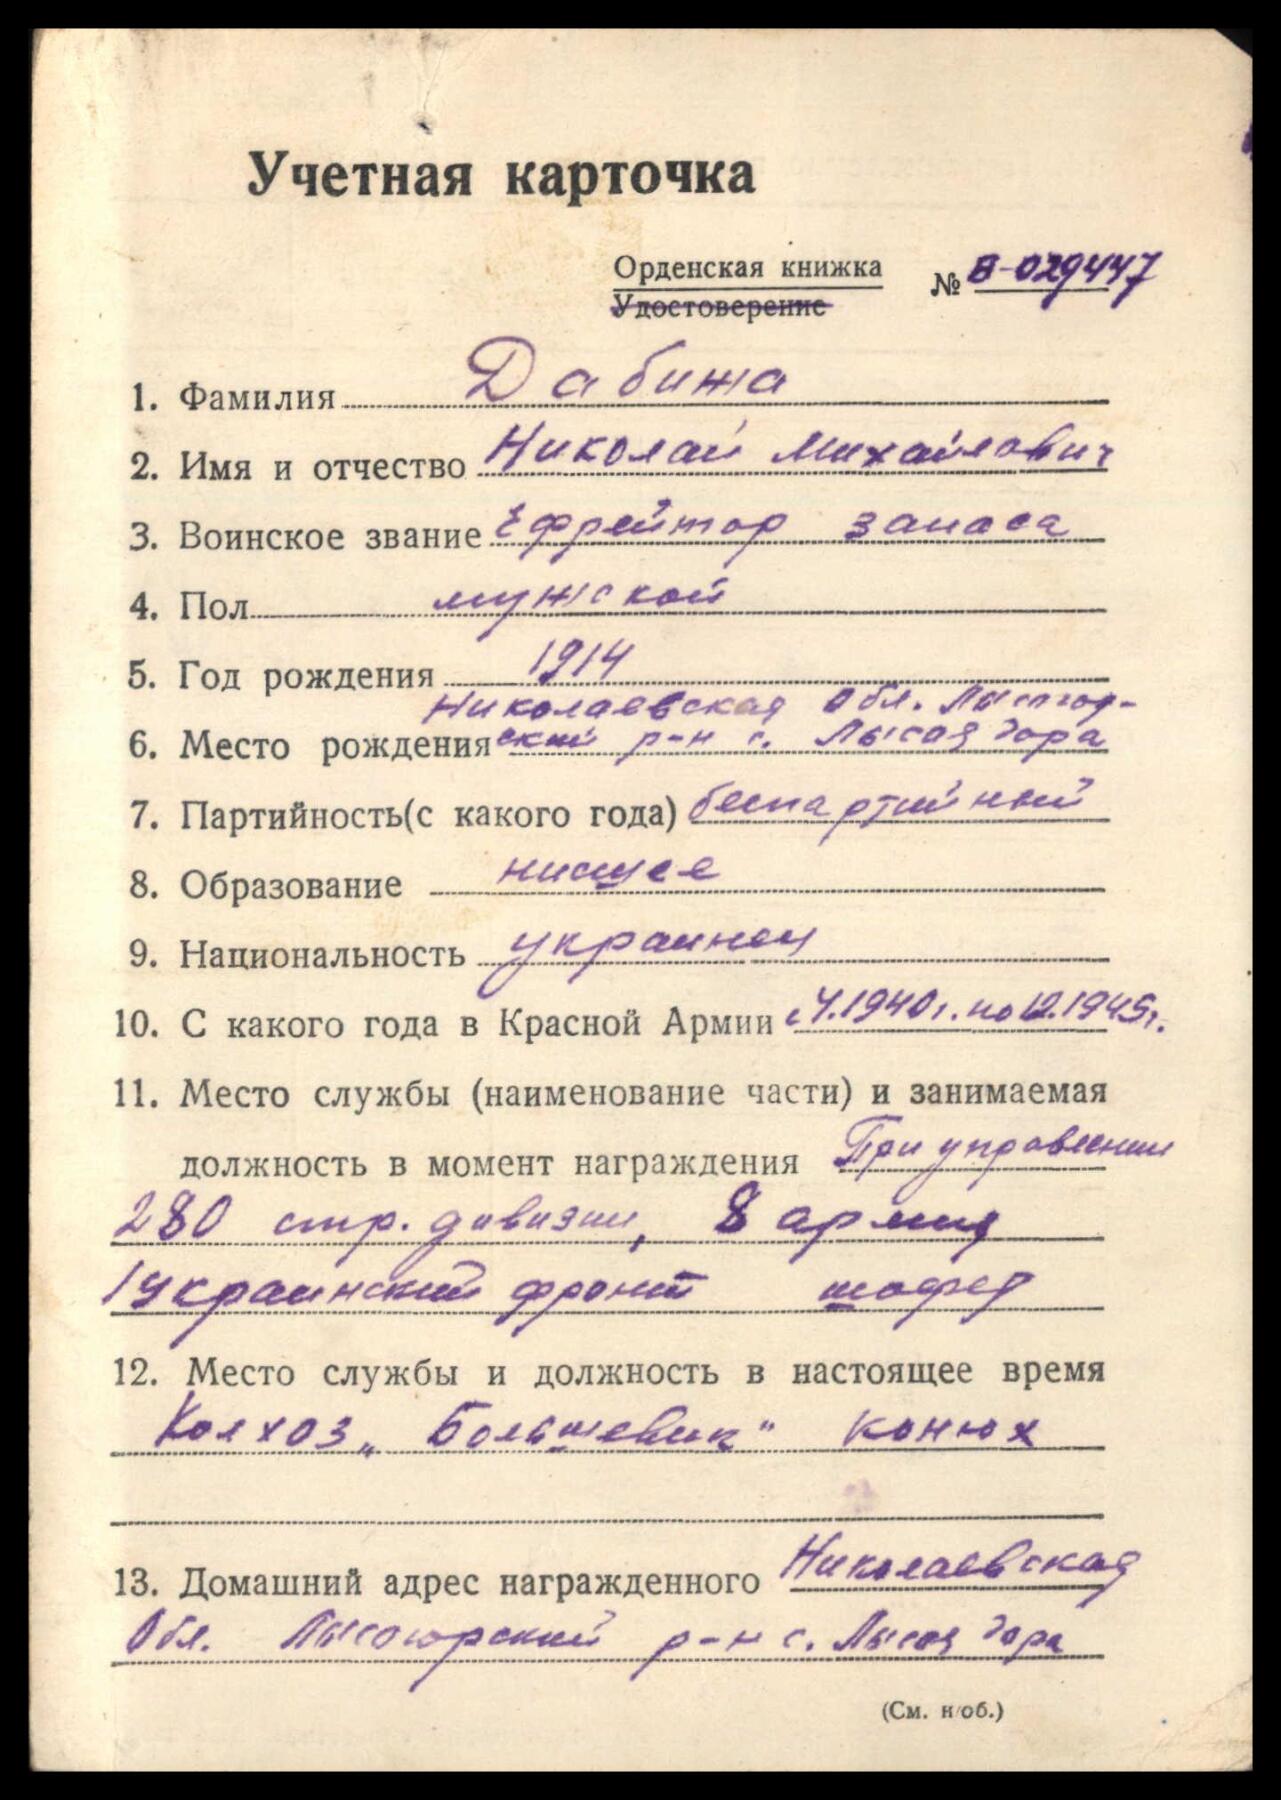 Учетная карточка
Орденская книжка
Удостоверение
№ В-029447
1. Фамилия Дабижа
2. Имя и отчество Николай Михайлович
3. Воинское звание Ефрейтор запаса
4. Пол мужской
5. Год рождения 1914
Николаевская Обл. Лысогор-
6. Место рождения ский р-н с. Лысая Гора
7. Партийность(с какого года) беспартийный
8. Образование нисшее
9. Национальность украинец
10. С какого года в Красной Армии с 4.1940г. по 12.1945г.
11. Место службы (наименование части) и занимаемая
должность в момент награждения При управлении
280 стр. дивизии, 8 армия
1 Украинский фронт шофер
12. Место службы и должность в настоящее время
Колхоз „Большевик" конюх
13. Домашний адрес награжденного Николаевская
Обл. Лысогорский р-н с. Лысая Гора
(См. н/об.)